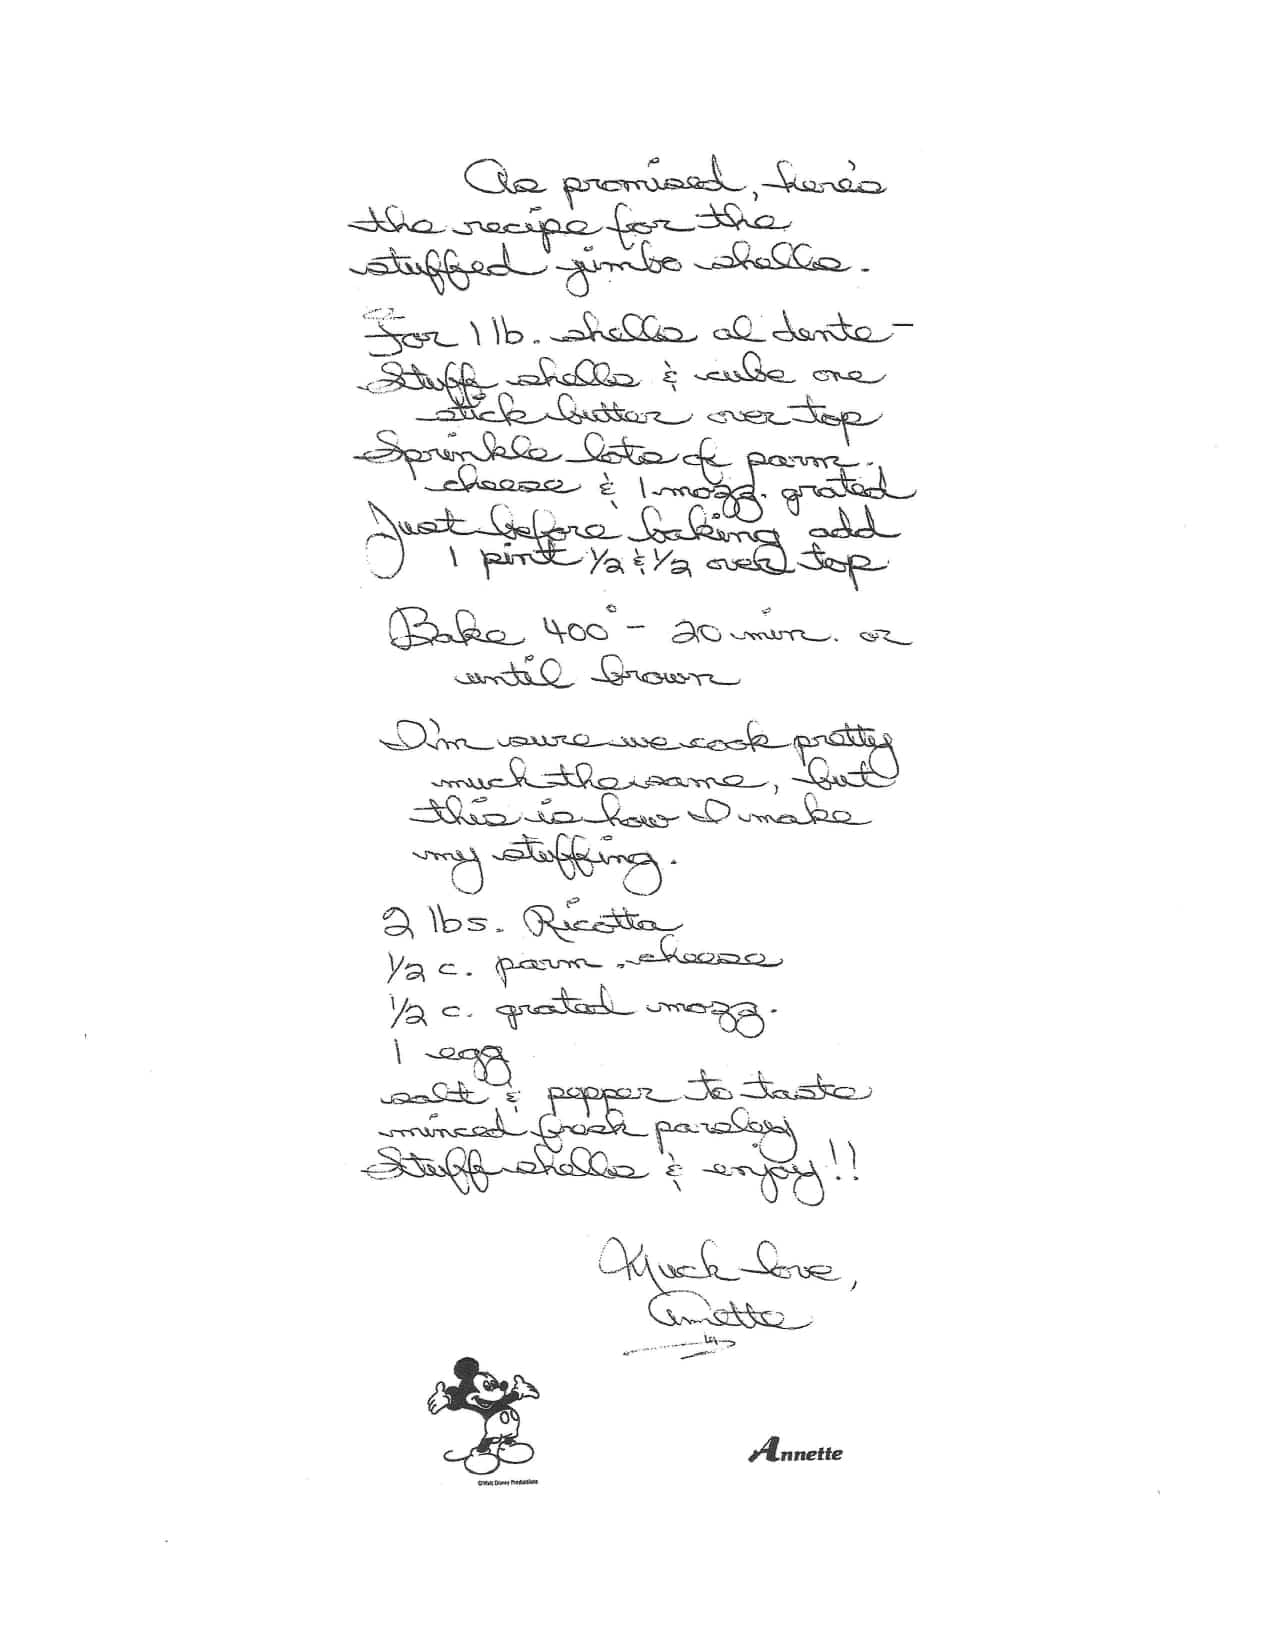 As promised, here's
the recipe for the
stuffed jumbo shells.
For 1 lb. shells al dente -
Stuff shells & cube one
stick butter over top
Sprinkle lots of parm.
cheese & 1 mozz. grated
Just before baking add
1 pint 1/2 & 1/2 over top
Bake 400° - 20 min. or
until brown
I'm sure we cook pretty
much the same, but
this is how I make
my stuffing.
2 lbs. Ricotta
1/2 c. parm. cheese
1/2 c. grated mozz.
1 egg
salt & pepper to taste
minced fresh parsley
Stuff shells & enjoy!!
Much love,
Annette
©Walt Disney Productions
Annette